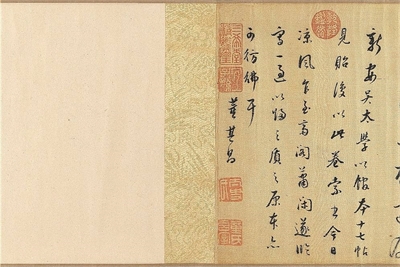 新安吴太學以館本十七帖
見貽後以此卷索書今日
涼風乍至高閣蕭閑遂臨
寫一過以歸之質之原本亦
可彷彿耳
董其昌